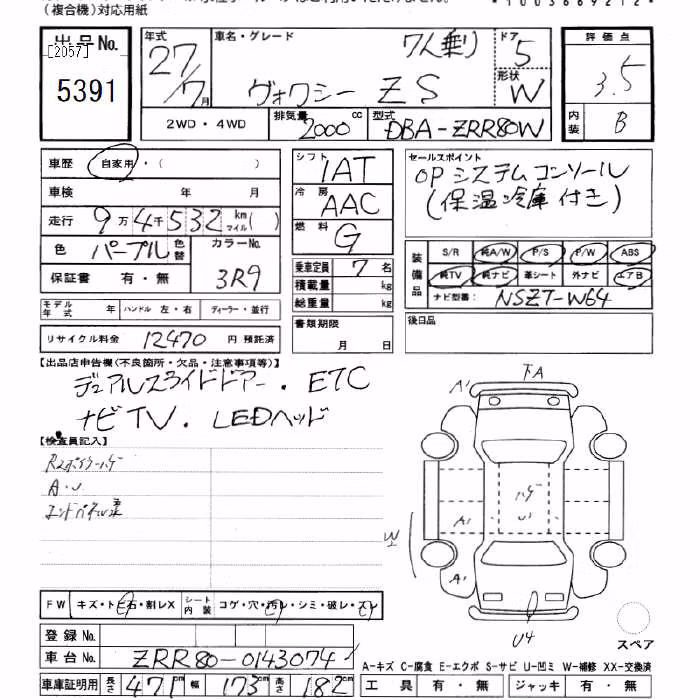 (複合機)対応用紙
*1003669212*
出品No.
[2057]
5391
年式 27/7月
車名・グレード 7人乗り
ヴォクシー ZS
ドア 5
形状 W
評価点 3.5
内装 B
2WD・4WD
排気量 2000cc
型式 DBA-ZRR80W
車歴 自家用・( )
車検 年 月
走行 9万4千532km マイル( )
色 パープル 色替 カラーNo. 3R9
保証書 有・無
モデル年式 年 ハンドル 左・右 ディーラー・並行
リサイクル料金 12470 円 預託済
シフト IAT
冷房 AAC
燃料 G
乗車定員 7名
積載量 kg
総重量 kg
書類期限 月 日
セールスポイント
OPシステムコンソール
(保温冷庫付き)
装備品 S/R 純A/W P/S P/W ABS
純TV 純ナビ 革シート 外ナビ エアB
ナビ型番: NSZT-W64
後日品
【出品店申告欄(不良箇所・欠品・注意事項等)】
デュアルスライドドアー・ETC
ナビTV・LEDヘッド
【検査員記入】
A・U
下A
A'
A'
A'
ハゲ
U'
W
U4
スペア
FW キズ・トビ石・割レX シート内装 コゲ・穴・汚レ・シミ・破レ・スレ
登録No.
車台No. ZRR80-0143074
車庫証明用 長さ 471cm 幅 173cm 高さ 182cm
A-キズ C-腐食 E-エクボ S-サビ U-凹ミ W-補修 XX-交換済
工具 有・無 ジャッキ 有・無